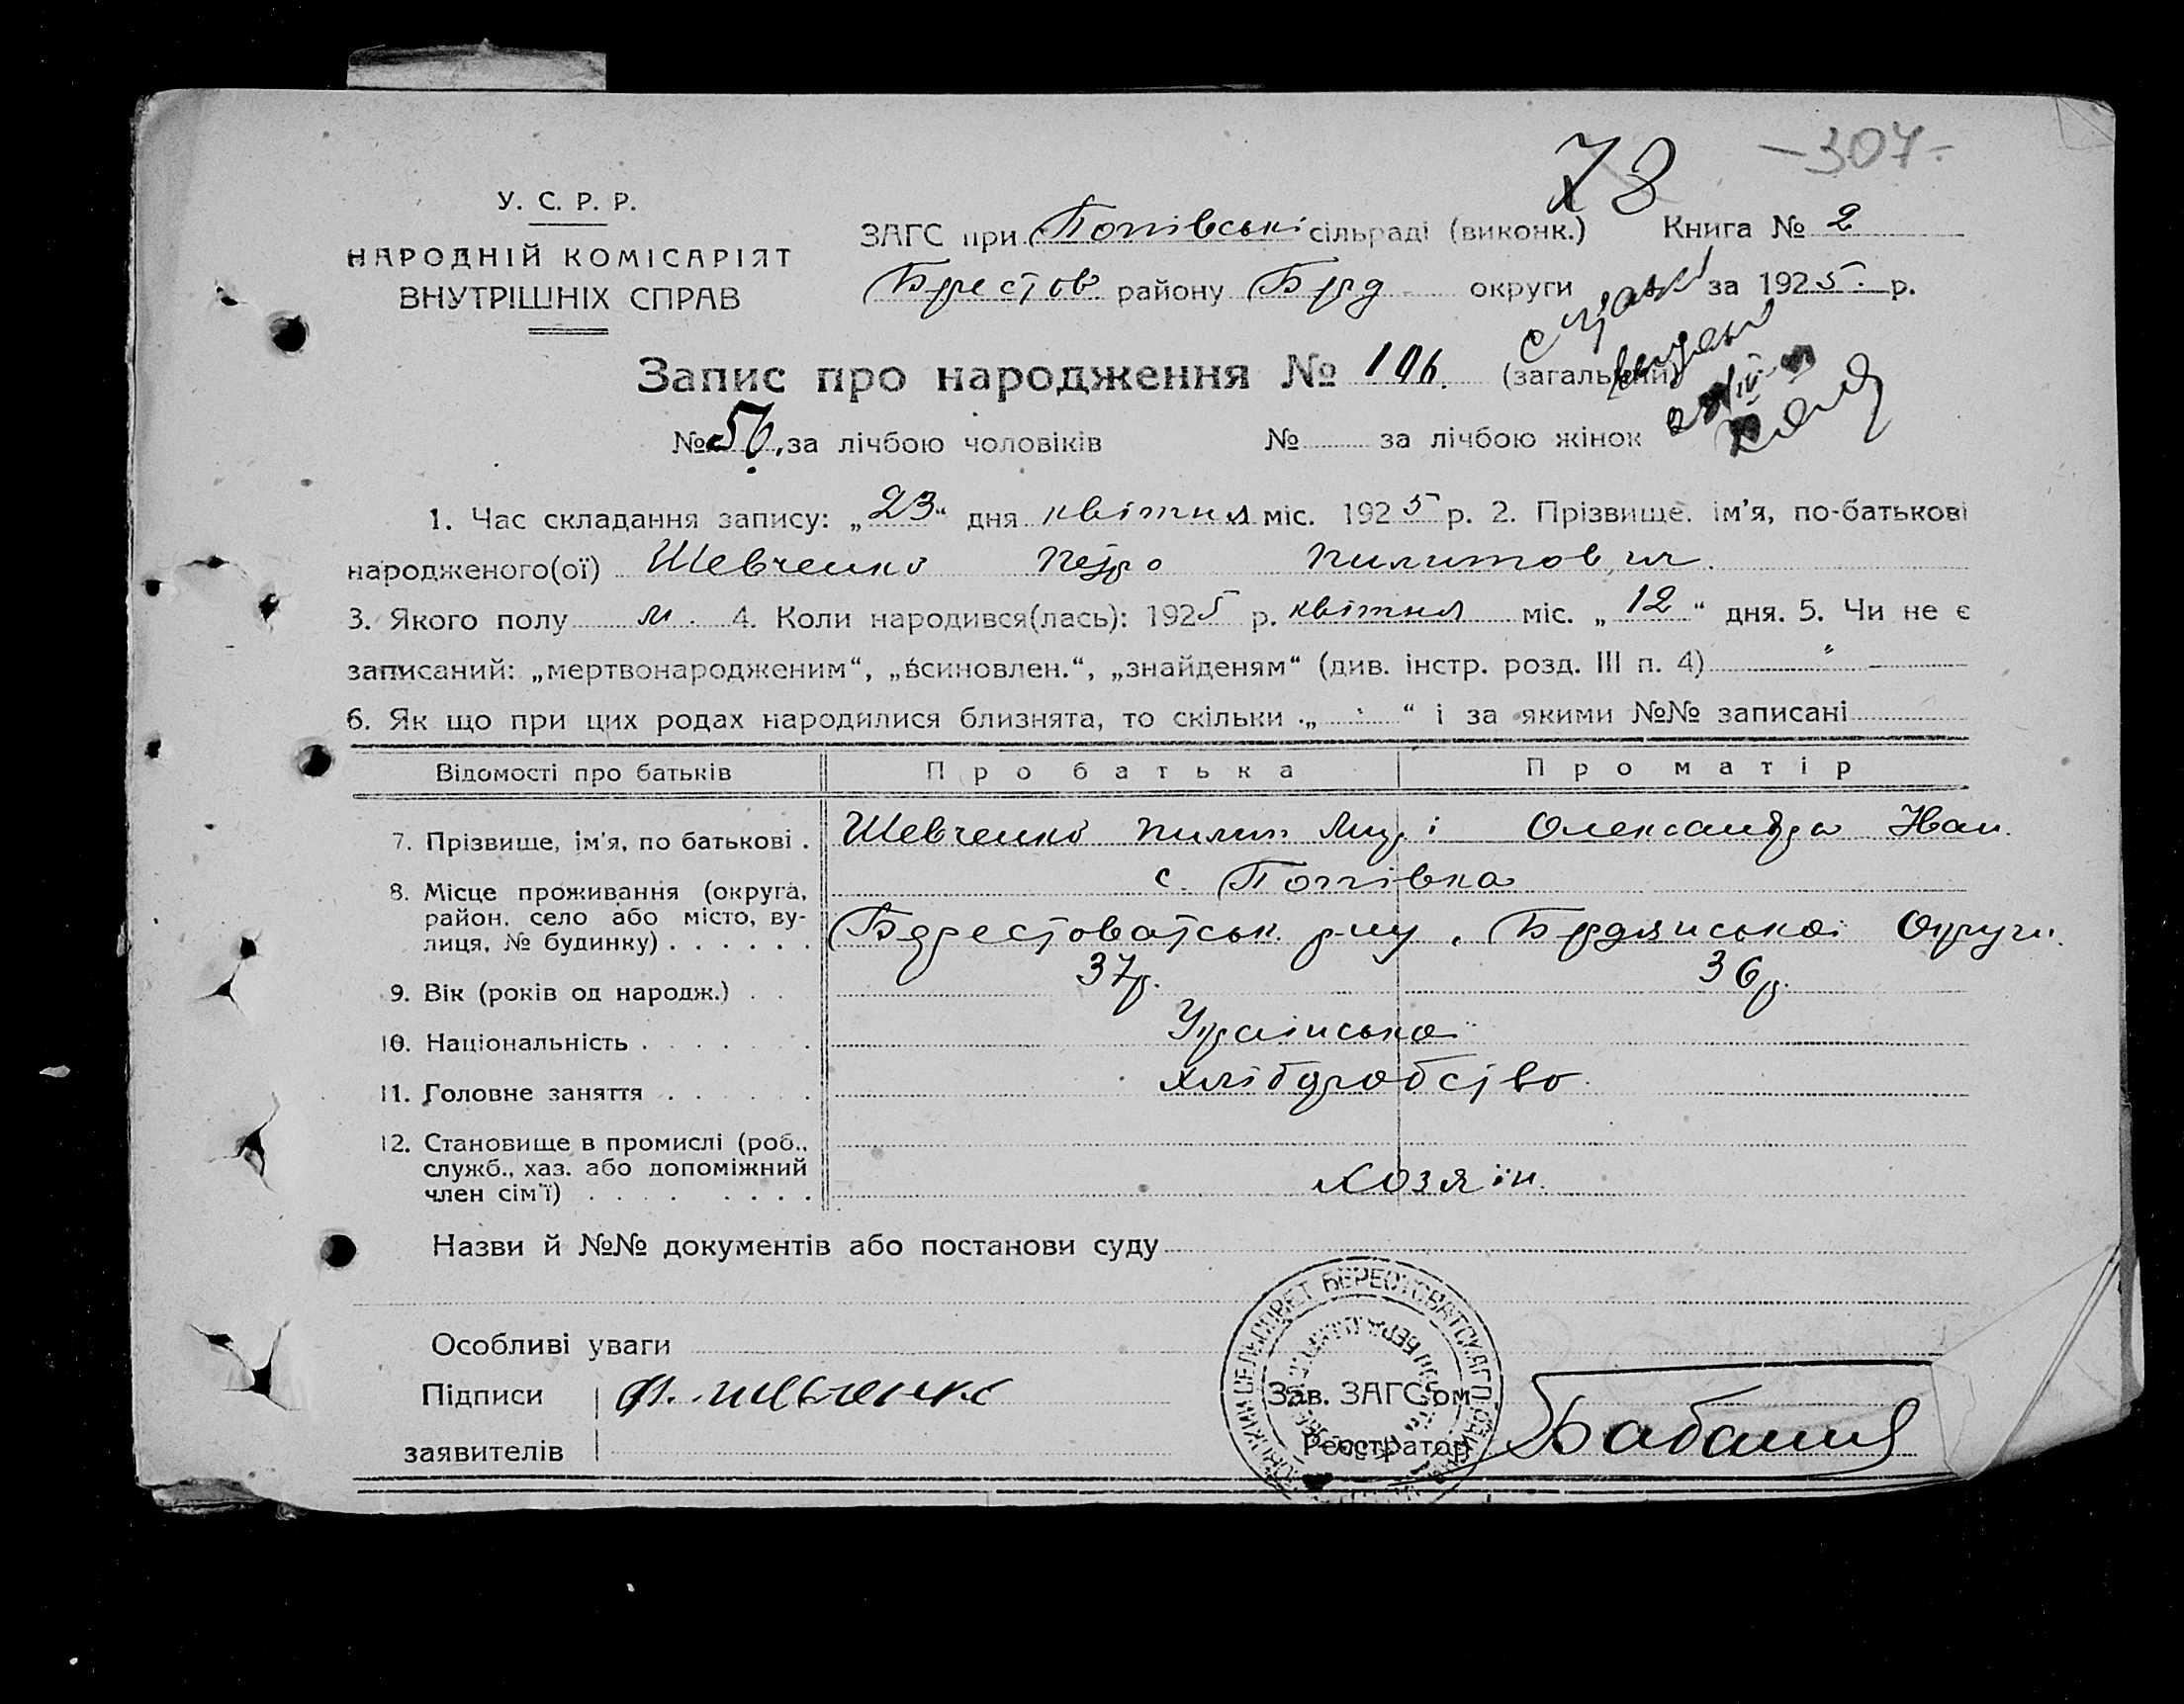 78 -307-
У. С. Р. Р.
НАРОДНІЙ КОМІСАРІЯТ
ВНУТРІШНІХ СПРАВ
ЗАГС при Попівські сільраді (виконк.) Книга № 2
Брестов району Брд округи за 1925 р.
Запис про народження № 106. (загальний)
№ 56, за лічбою чоловіків № за лічбою жінок
1. Час складання запису: „23“ дня квітня міс. 1925 р. 2. Прізвище, ім'я, по-батькові
народженого(ої) Шевченко Петро Пилипович
3. Якого полу м. 4. Коли народився(лась): 1925 р. квітня міс. „12“ дня. 5. Чи не є
записаний: „мертвонародженим“, „всиновлен.“, „знайденям“ (див. інстр. розд. III п. 4)
6. Як що при цих родах народилися близнята, то скільки „ “ і за якими №№ записані
Відомості про батьків Про батька Про матір
7. Прізвище, ім'я, по батькові . Шевченко Пилип і Олександра Іван.
8. Місце проживання (округа, с. Попівка
район, село або місто, ву-
лиця, № будинку) . . . . . . Берестоватськ. р-ну, Бердянської Округи.
9. Вік (років од народж.) . . 37р. 36р.
10. Національність . . . . . . . Українська
11. Головне заняття . . . . . . хліборобство
12. Становище в промислі (роб.,
служб., хаз. або допоміжний
член сім'ї) . . . . . . . . хозяїн.
Назви й №№ документів або постанови суду
Особливі уваги
Підписи Шевченко Зав. ЗАГС'ом
заявителів Реєстратор
СЕЛЬСОВЕТ БЕРЕСТОВАТСКАГО